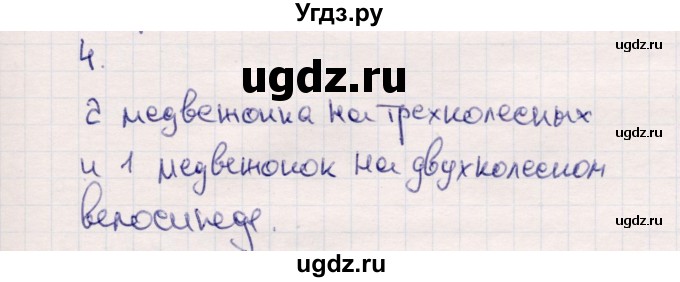 Угдз.ру
4.
ugdz.ru
ugdz.ru
2 медвежонка на трехколесных
и 1 медвежонок на двухколесном
ugdz.ru
велосипеде.
ugdz.ru
ugdz.ru